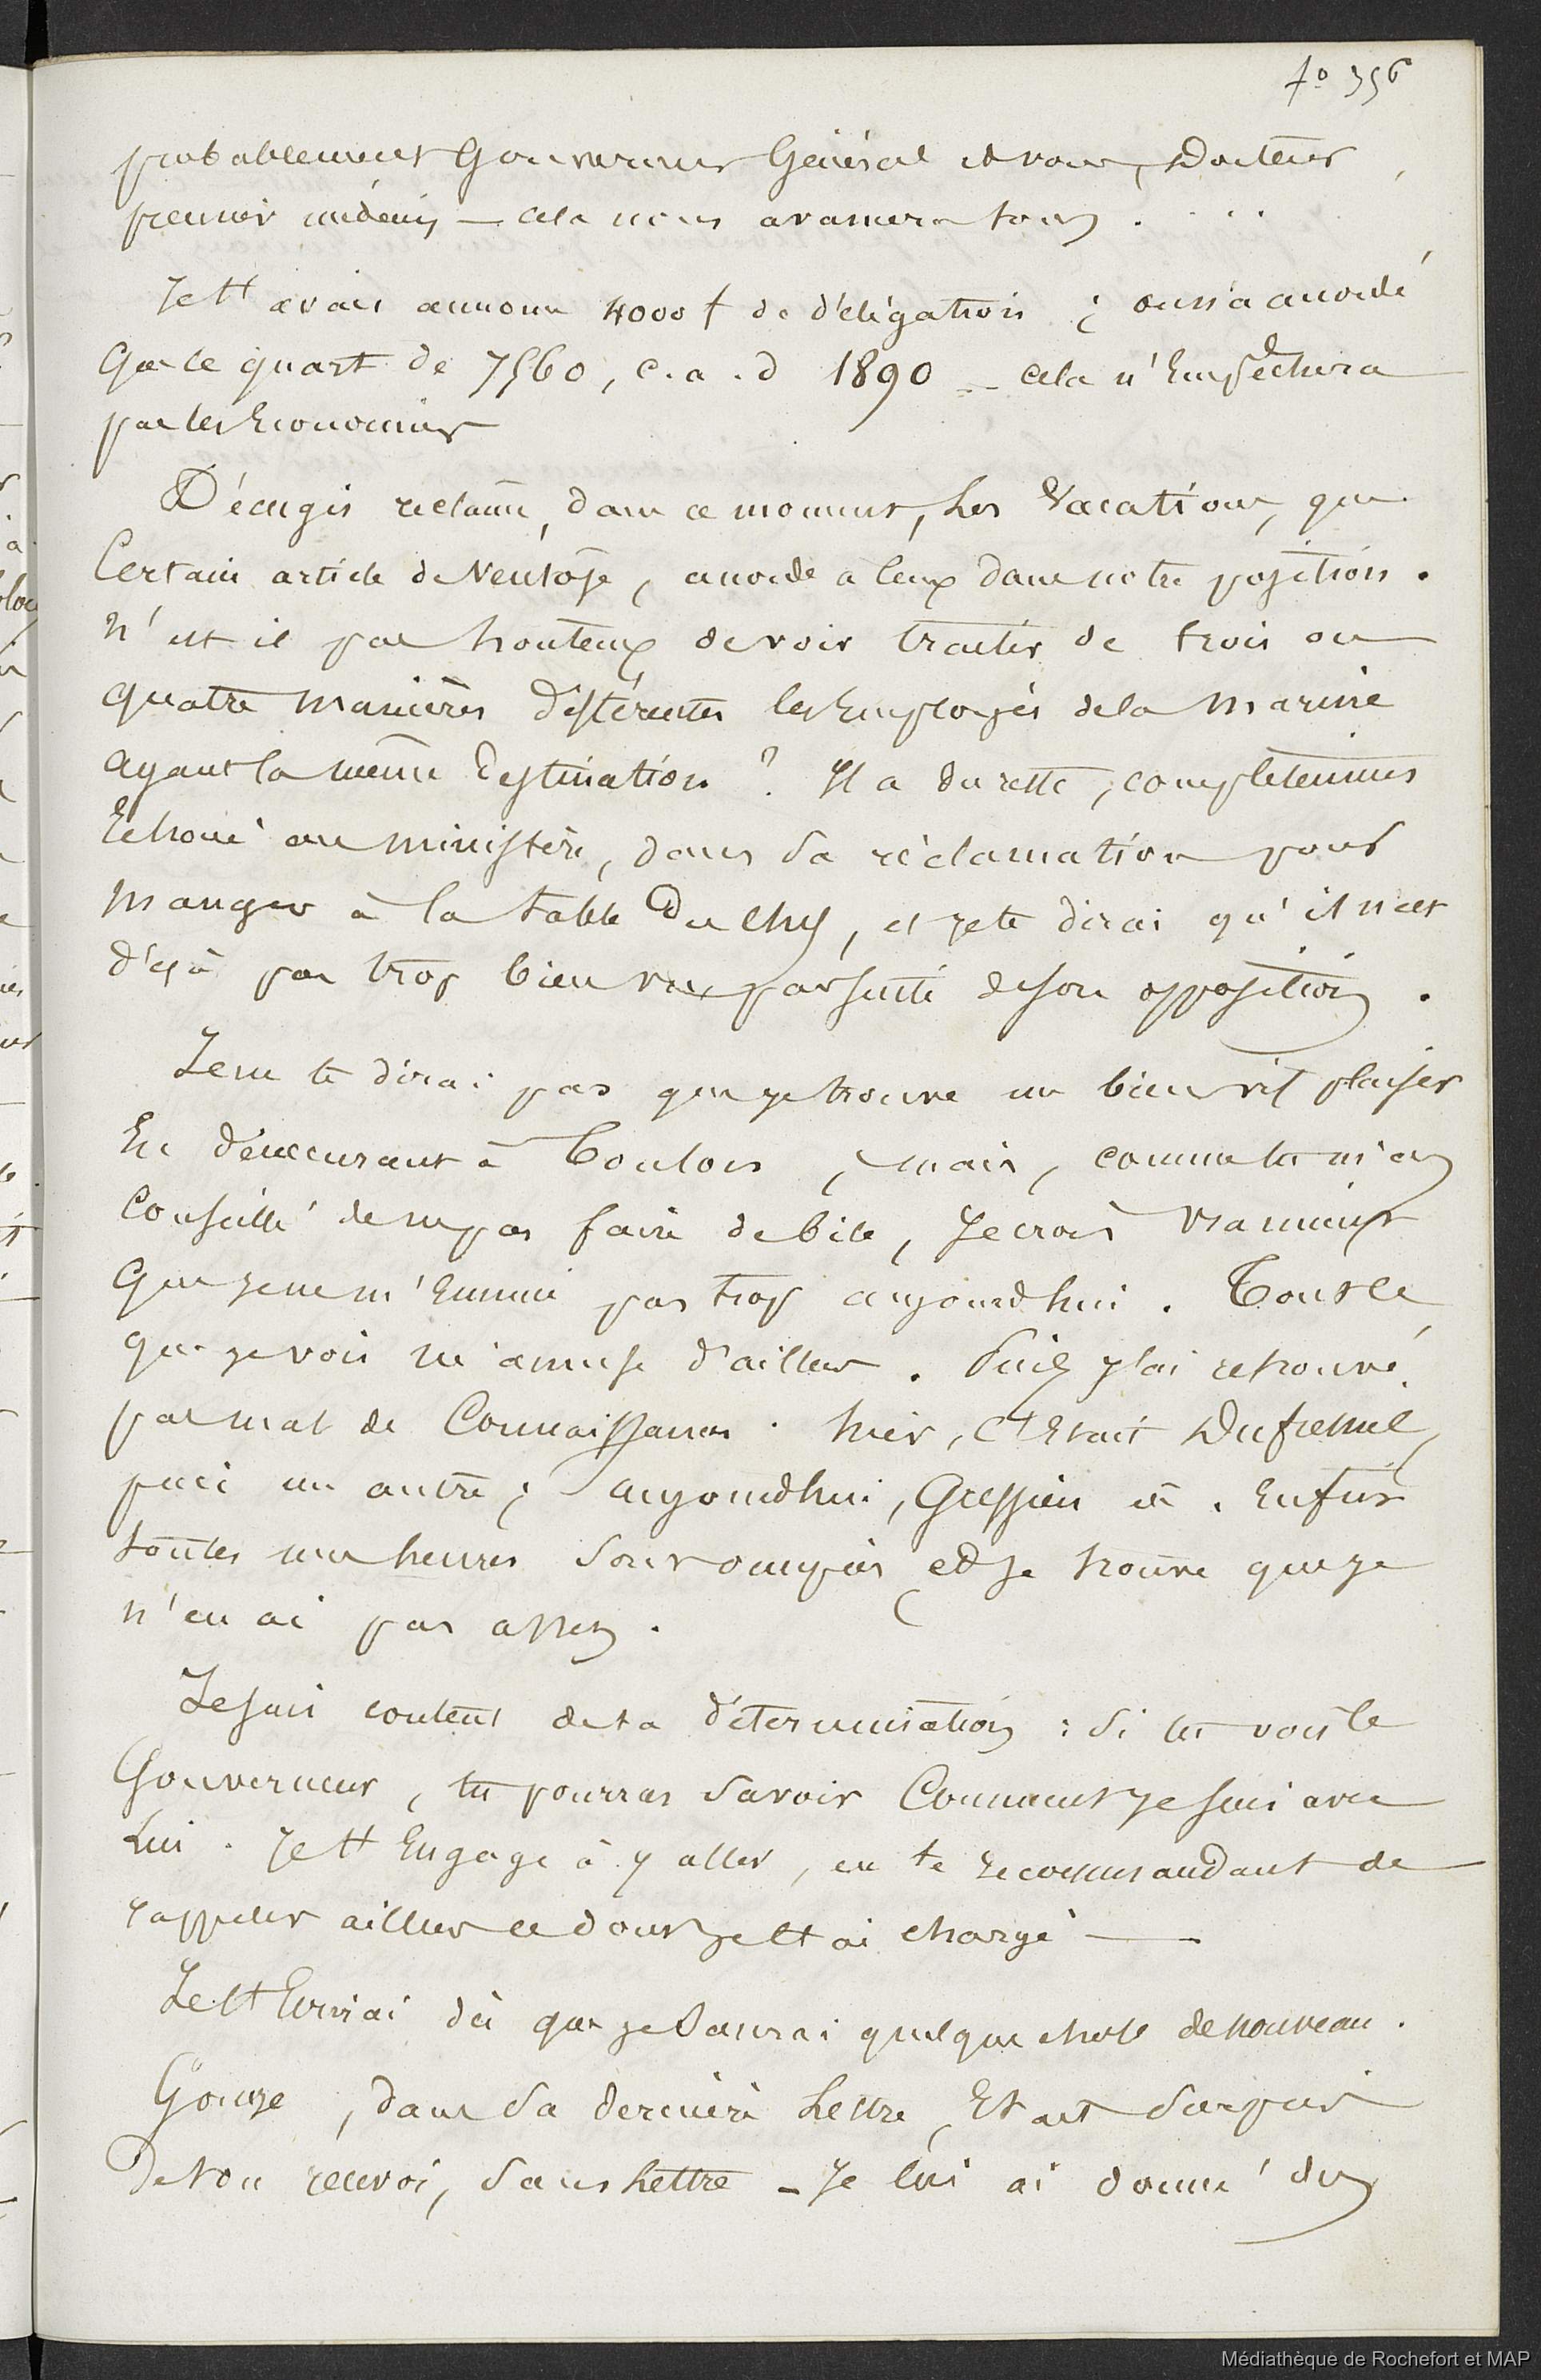 fo 356
probablement Gouverneur Général et vous, Docteur,
premier médecin — cela nous avancera tous . . . .
Je t'avais annoncé 4000 f de délégation ; on n'a accordé
que le quart de 7560, c. a. d 1890 — cela n'Empêchera
pas les Economies
Décugis réclame, dans ce moment, les Vacations, que
Certain article de Ventôse, accorde à Ceux dans notre position.
N'est il pas honteux de voir traiter de trois ou
quatre manières différentes les Employés de la Marine
ayant la même Destination ? Il a du reste, complètement
Echoué au ministère, dans sa réclamation pour
manger à la table du Chef, et je te dirai qu'il n'est
déjà pas trop bien vu par suite de son opposition.
Je ne te dirai pas que je trouve un bien vif plaisir
En demeurant à Toulon, mais, comme tu m'as
Conseillé de ne pas faire de bile, Je crois vraiment
Que je ne m'Ennuie pas trop aujourdhui. Tout ce
que je vois m'amuse d'ailleurs. Puis j'ai retrouvé
pas mal de Connaissances. hier, C'Etait Dufresnil,
puis un autre ; aujourdhui, Gressien &a. Enfin
toutes mes heures sont occupées et je trouve que je
n'en ai pas assez.
Je suis content de ta détermination : si tu vois le
Gouverneur, tu pourras savoir Comment je suis avec
Lui. Je t'Engage à y aller, en te recommandant de
rappeler ailleurs ce dont je t'ai chargé —
Je t'Ecrirai dès que je saurai quelque chose de nouveau.
Gouze, dans sa dernière Lettre, Etait surpris
De ton renvoi, sans Lettre — Je lui ai donné des
Médiathèque de Rochefort et MAP